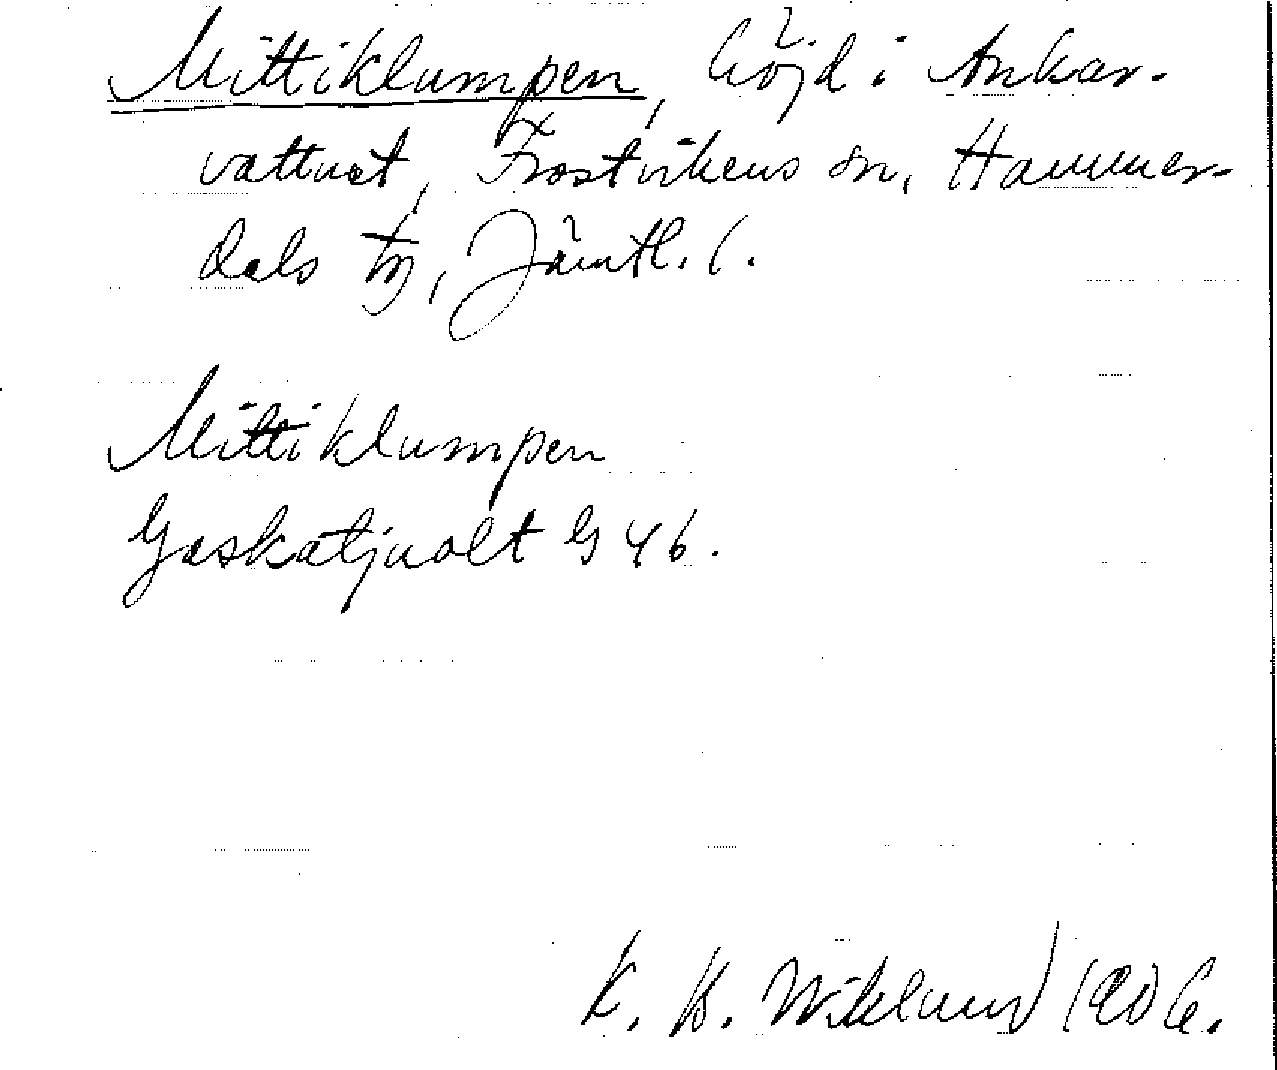 Mittiklumpen, höjd i Ankar-
vattnet, Frostvikens sn, Hammer-
dals tg, Jämtl. l.
Mittiklumpen
Gaskatjuolt G 46.
K. B. Wiklund 1906.